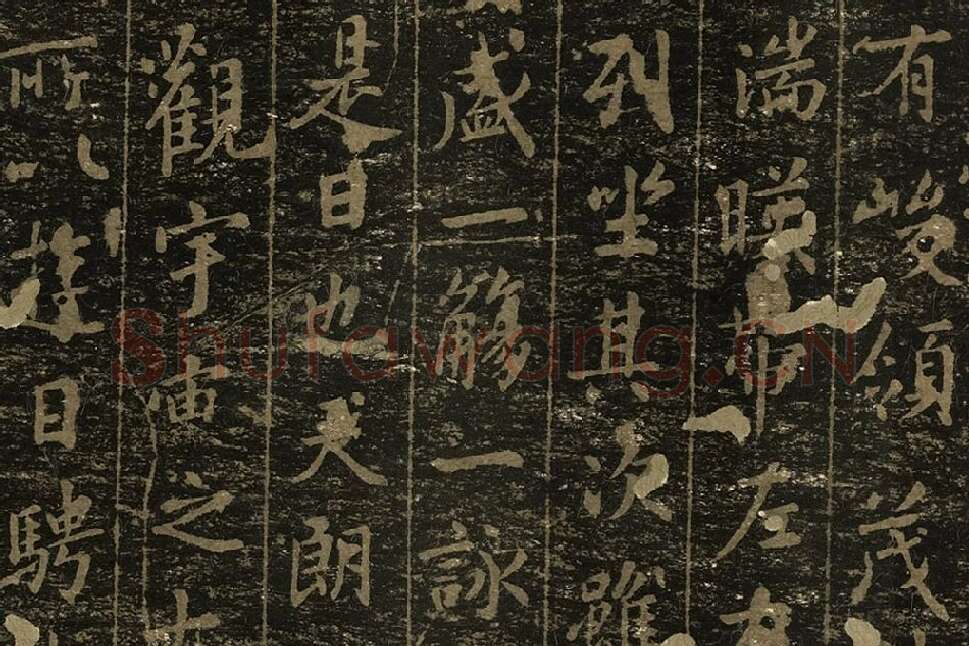 有峻領茂
湍暎帶左右
列坐其次雖
盛一觴一詠
是日也天朗
觀宇宙之大
所以遊目騁
Shufawang.CN